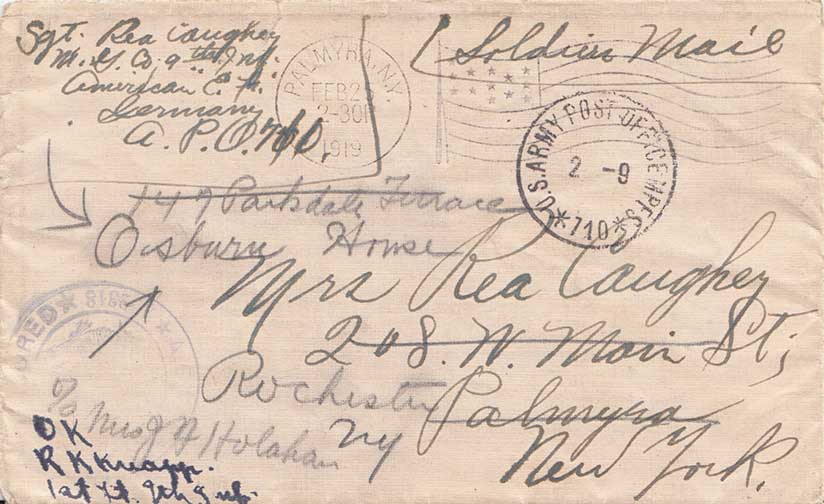 Sgt. Rea Caughey
M. G. Co. 9th Inf.
American E. F.
Germany
A. P. O. 710.
Soldiers Mail
PALMYRA, N.Y.
FEB 2
2-30P
1919
U.S. ARMY POST OFFICE M.P.E.S.
2 -9
*710*
147 Parkdale Terrace
Osburn House
Mrs Rea Caughey
208. W. Main St;
Rochester
Palmyra
NY
New York.
% Mrs J H Holahan
OK
R K Knapp.
1st Lt. 9th Inf.